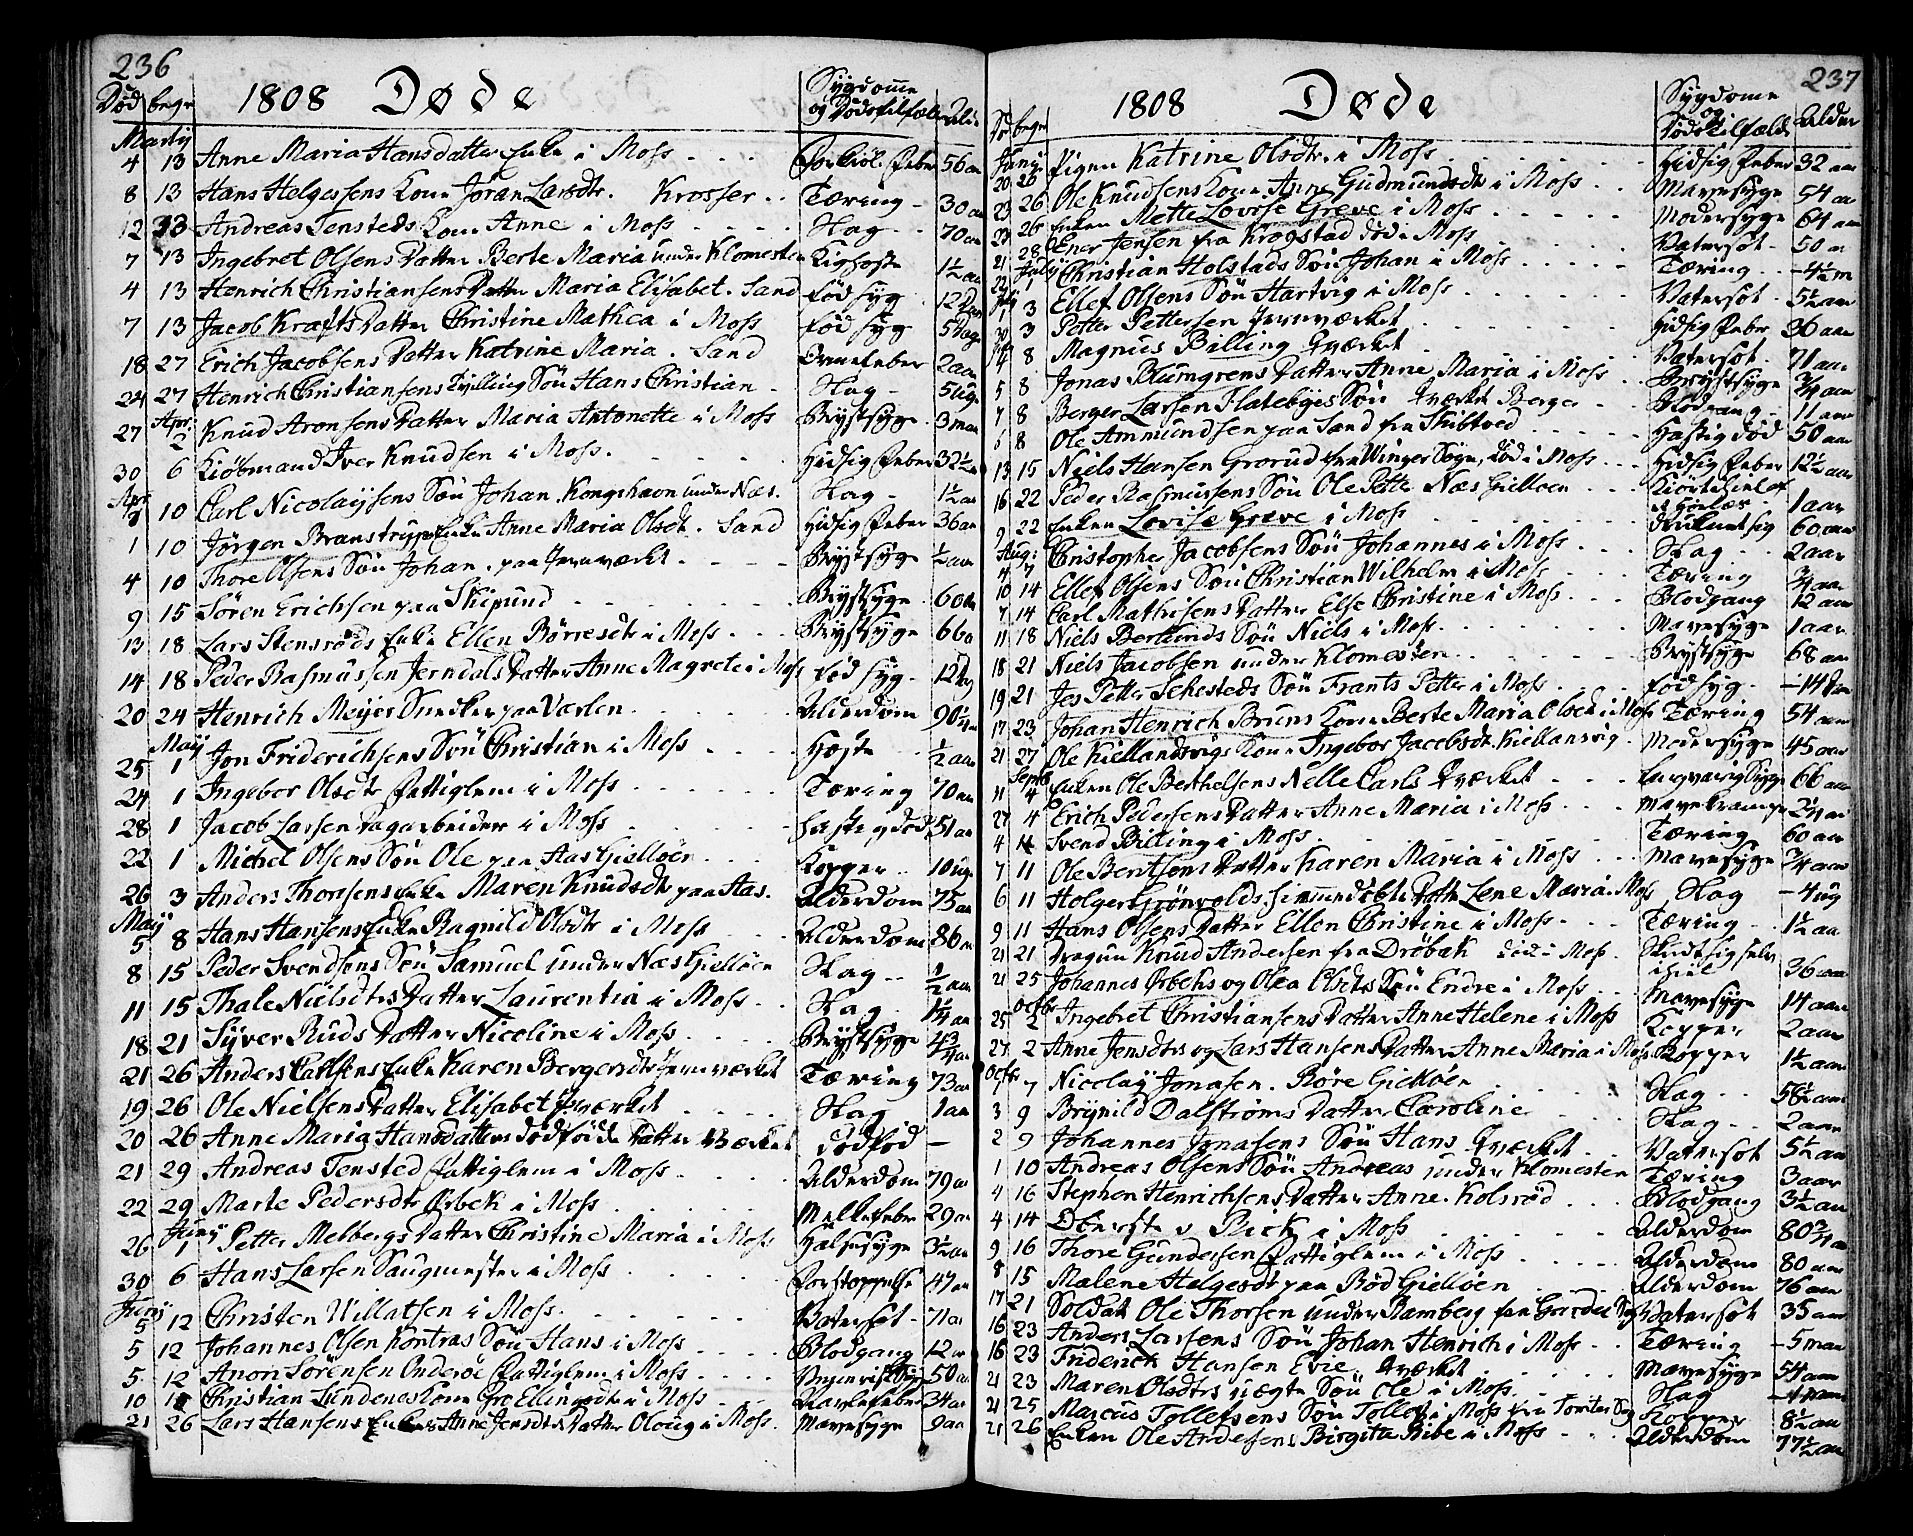 236
Død begr 1808 Døde Sygdomme og Dødstilfælde Alder
Martij
4 13 Anne Maria Hansdatter Enke i Moss Forkiöl. Feber 56 aar
8 13 Hans Helgessens Kone Jøran Larsdtr. Krosser Tæring 30 aar
12 23 Andreas Tensteds Kone Anne i Moss Slag 70 aar
7 13 Ingebret Olsens Datter Berte Maria under Klomesten Kighoste 1½ aar
4 13 Henrich Christiansens Datter Maria Elisabet. Sand Fødsyg 12 Dag
7 13 Jacob Krafts Datter Christine Mathea i Moss Fødsyg 5 dage
18 27 Erich Jacobsens Datter Katrine Maria. Sand Ormefeber 2 aar
24 27 Henrich Christiansens Tvilling Søn Hans Christian Slag 5 uge
27 Apr. 2 Knud Aronsens Datter Maria Antonette i Moss Brystsyge 3 maan
30 6 Kiøbmand Iver Knudsen i Moss. Hidsig Feber 32½ aar
Apr
7 10 Carl Nicolaysens Søn Johan. Kongshavn under Næs. Slag 1½ aar
1 10 Jørgen Branstrups Enke Anne Maria Olsdt. Sand Hidsig Feber 36 aar
4 10 Thore Olsens Søn Johan. paa Jernværket Brystsyge ½ aar
9 15 Søren Erichsen paa Skipund Brystsyge 60 aar
13 18 Lars Stensrøds Enke Ellen Børresdtr i Moss Brystsyge 66 a
14 18 Peder Rasmussen Jerndals Datter Anne Magrete i Moss Fødsyg 12 Dag
20 24 Henrich Meyer Snedker paa Varlen Alderdom 90¼ aar
May
25 1 Jon Friderichsens Søn Christian i Moss Hoste ½ aar
24 1 Ingebor Olsdtr Fattiglem i Moss Tæring 70 aar
28 1 Jacob Larsen Dagarbeider i Moss Hastig død 51 aar
22 1 Michel Olsens Søn Ole paa Aas Gielløen Kopper 10 uge
26 3 Anders Thorsens Enke Maren Knudsdtr paa Aas. Alderdom 75 aar
May
5 8 Hans Hansens Enke Ragnild Olsdtr i Moss Alderdom 86 a
8 15 Peder Svendsens Søn Samuel under Næs Gielløen Slag ½ aar
11 15 Thale Nielsdtrs Datter Laurentia i Moss Slag 1¼ aar
18 21 Syver Ruds Datter Nicoline i Moss Brystsyge 4¾ aar
21 26 Anders Carlsens Enke Karen Bergersdtr Jernværket Tæring 73 aar
19 26 Ole Nielsens Datter Elisabet Jværket Slag 1 aar
20 26 Anne Maria Hansdatters dødføde Datter Værket Dødfød —
21 29 Andreas Tensted Fattiglem i Moss Alderdom 79 a
22 29 Marte Pedersdtr Ørbek i Moss Melkefeber 29 a
Juny
26 1 Petter Melbergs Datter Christine Maria i Moss Halssyge 3½ aar
30 6 Hans Larsen Saugmester i Moss Forstoppelse 47 aar
Juny
5 12 Christen Willatsen i Moss. Vatersot 71 aar
5 12 Johannes Olsen Kontras Søn Hans i Moss Blodgang 12 a
5 12 Anon Sørensen Onderöe Fattiglem i Moss 50 a
10 15 Christian Lundenes Kone Gro Ellingsdtr i Moss 34 aar
21 26 Lars Hansens Enkes Anne Jensdtrs Datter Oloug i Moss. Mavesyge 9 aar
237
Dø begr 1808 Døde Sygdome og Dødstilfælde Alder
Juny
20 26 Pigen Katrine Olsdtr. i Moss Hidsig Feber 32 aar
23 26 Ole Knudsens Kone Anne Gudmundsdt i Moss Mavesyge 54 aar
23 26 Enken Mette Lovise Greve i Moss Modersyge 64 aar
21 28 Ener Jensen fra Krogstad død i Moss Vatersot 50 aar
July
22 1 Christian Holstads Søn Johan i Moss Tæring 4½ m
July
1 3 Ellef Olsens Søn Hartvig i Moss Vatersot 5½ aar
30 3 Petter Pettersen Jernværket Hidsig Feber 36 aar
4 8 Magnus Billing Jværket Vatersot 71 aar
5 8 Jonas Blumgrens Datter Anne Maria i Moss Brystsyge ¾ aar
7 8 Berger Larsen Flatebyes Søn Jværket Berger Blodgang 11 aar
6 8 Ole Ammundsen paa Sand fra Skibtved Hastig død 50 aar
13 15 Niels Hansen Grorud fra Winger Sogn, død i Moss Hidsig Feber 12½ aar
16 22 Peder Rasmussens Søn Ole Petter Næs Gielløen 1 aar
9 22 Enken Lovise Greve i Moss 60 aar
Aug:
4 7 Christopher Jacobsens Søn Johannes i Moss Slag 2 aar
10 14 Ellef Olsens Søn Christian Wilhelm i Moss Tæring ¾ aar
7 14 Carl Mathisens Datter Else Christine i Moss Blodgang 12 aar
11 18 Niels Berlunds Søn Niels i Moss. Mavesyge 1 aar
18 21 Niels Jacobsen under Klomesten Brystsyge 68 aar
19 21 Jes Petter Sehesteds Søn Frants Petter i Moss Fødsyg 14 D
17 23 Johan Henrich Bruns Kone Berte Maria Olsdt i Moss Tæring 54 aar
21 27 Ole Kiellandsvigs Kone Ingebor Jacobsdt. Kiellansvig Modersyge 45 aar
Septb
11 4 Enken Ole Berthelsens Nelle Carls Jværket Langvarig Syge 66 aar
27 4 Erich Pedersens Datter Anne Maria i Moss Mavekrampe 2¼ aar
4 11 Svend Billing i Moss Tæring 60 aar
7 11 Ole Bentsens Datter Karen Maria i Moss Mavesyge ¾ aar
6 11 Holger Grönvolds hjemmedøbt Datter Lene Maria Moss Slag 4 ug
9 11 Hans Olsens Datter Ellen Christine i Moss Tæring 1½ aar
21 21 Dragun Knud Andersen fra Drøbak død i Moss. Skudt sig selv ihiel 36 aar
21 25 Johannes Ørbeks og Olea Olsdtrs Søn Endre i Moss Mavesyge 14 aar
Octbr
25 2 Ingebret Christiansens Datter Anne Helene i Moss Kopper 2 aar
27 2 Anne Jensdtrs og Lars Hansens Datter Anne Maria i Moss Kopper 1½ aar
Octbr
1 7 Nicolay Jonasen. Røre Gielløen Slag 56½ aar
3 9 Brynild Dalstrøms Datter Caroline Slag 2 aar
2 9 Johannes Jonasens Søn Hans Jværket Vatersot 5½ aar
1 10 Andreas Olsens Søn Andreas under Klomesten Tæring 3 aar
4 16 Stephen Henrichsens Datter Anne. Kolsrød Blodgang 3½ aar
4 14 Oberste v Rick i Moss Alderdom 80¾ aar
9 16 Thore Gundersen Fattiglem i Moss Alderdom 80 aar
8 15 Malene Helgesdt paa Rød Gielløen Alderdom 76 aar
17 21 Soldat Ole Thorsen under Ramberg fra Vatersot 35 aar
16 23 Anders Larsens Søn Johan Henrich i Moss Tæring 5 maan
16 23 Friderich Hansen Evie Jværket Mavesyge 54 aar
21 23 Maren Olsdtrs uægte Søn Ole i Moss Slag
21 25 Marcus Tollefsens Søn Tollef i Moss fra Kopper 8½ aar
21 26 Enken Ole Andersens Birgita Ribe i Moss Alderdom 77½ aar